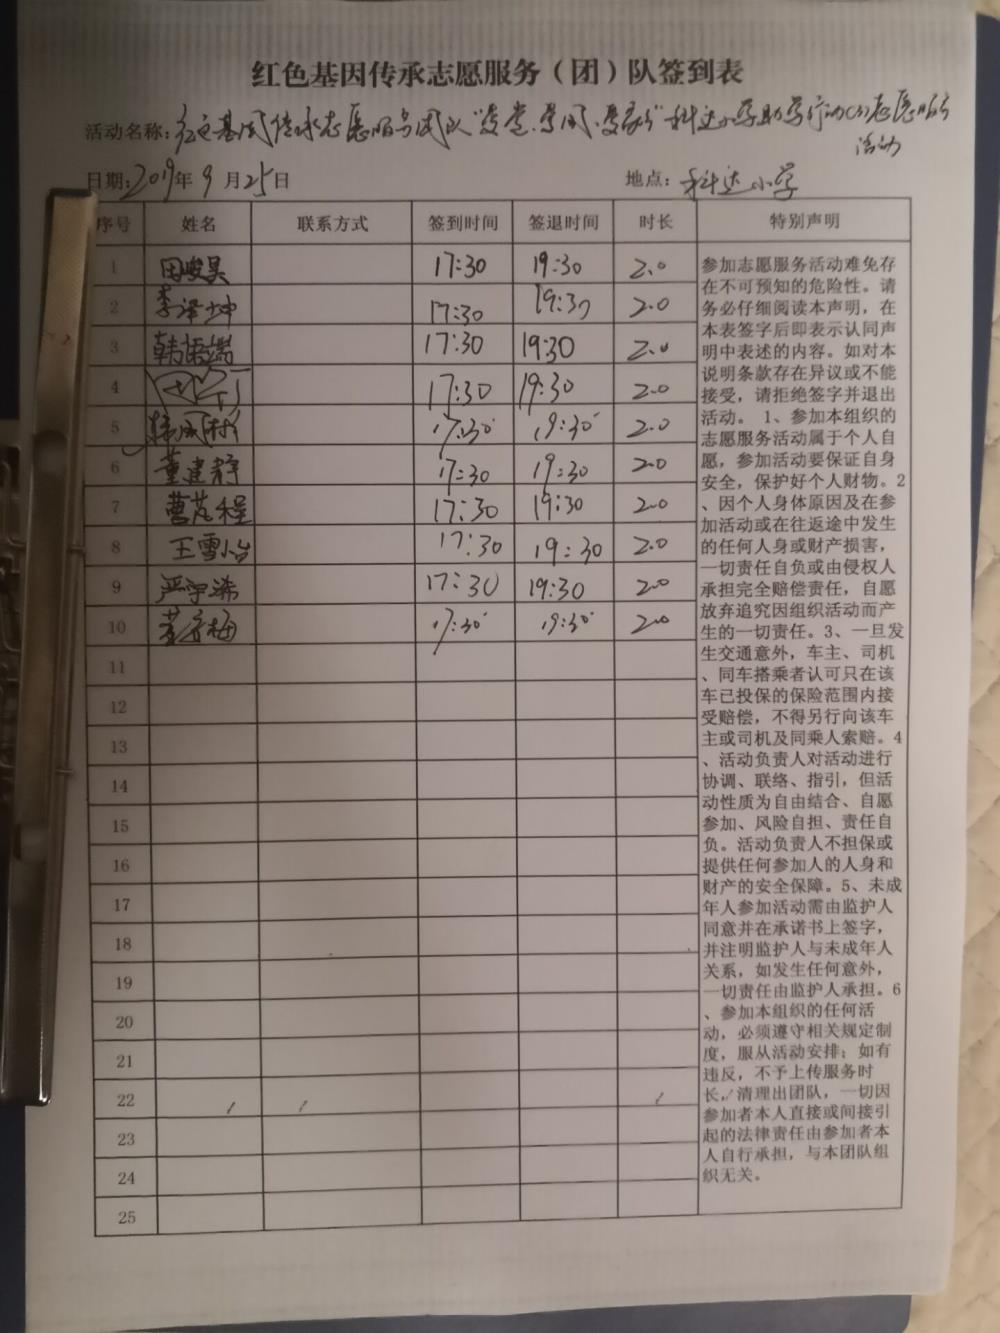 红色基因传承志愿服务（团）队签到表
活动名称：红色基因传承志愿服务团队"爱党.爱国.爱家乡"科达小学助学行动(3)志愿服务
活动
日期：2019年9月25日 地点：科达小学
序号 姓名 联系方式 签到时间 签退时间 时长 特别声明
1 田峻昊 17:30 19:30 2.0
2 李泽坤 17:30 19:30 2.0
3 韩语嫣 17:30 19:30 2.0
4 17:30 19:30 2.0
5 17:30 19:30 2.0
6 董建静 17:30 19:30 2.0
7 曹茂程 17:30 19:30 2.0
8 王雪怡 17:30 19:30 2.0
9 严宇浠 17:30 19:30 2.0
10 17:30 19:30 2.0
11
12
13
14
15
16
17
18
19
20
21
22
23
24
25
参加志愿服务活动难免存
在不可预知的危险性。请
务必仔细阅读本声明，在
本表签字后即表示认同声
明中表述的内容。如对本
说明条款存在异议或不能
接受，请拒绝签字并退出
活动。 1、参加本组织的
志愿服务活动属于个人自
愿，参加活动要保证自身
安全，保护好个人财物。2
、因个人身体原因及在参
加活动或在往返途中发生
的任何人身或财产损害，
一切责任自负或由侵权人
承担完全赔偿责任，自愿
放弃追究因组织活动而产
生的一切责任。3、一旦发
生交通意外，车主、司机
、同车搭乘者认可只在该
车已投保的保险范围内接
受赔偿，不得另行向该车
主或司机及同乘人索赔。4
、活动负责人对活动进行
协调、联络、指引，但活
动性质为自由结合、自愿
参加、风险自担、责任自
负。活动负责人不担保或
提供任何参加人的人身和
财产的安全保障。5、未成
年人参加活动需由监护人
同意并在承诺书上签字，
并注明监护人与未成年人
关系，如发生任何意外，
一切责任由监护人承担。6
、参加本组织的任何活
动，必须遵守相关规定制
度，服从活动安排；如有
违反，不予上传服务时
长，清理出团队，一切因
参加者本人直接或间接引
起的法律责任由参加者本
人自行承担，与本团队组
织无关。